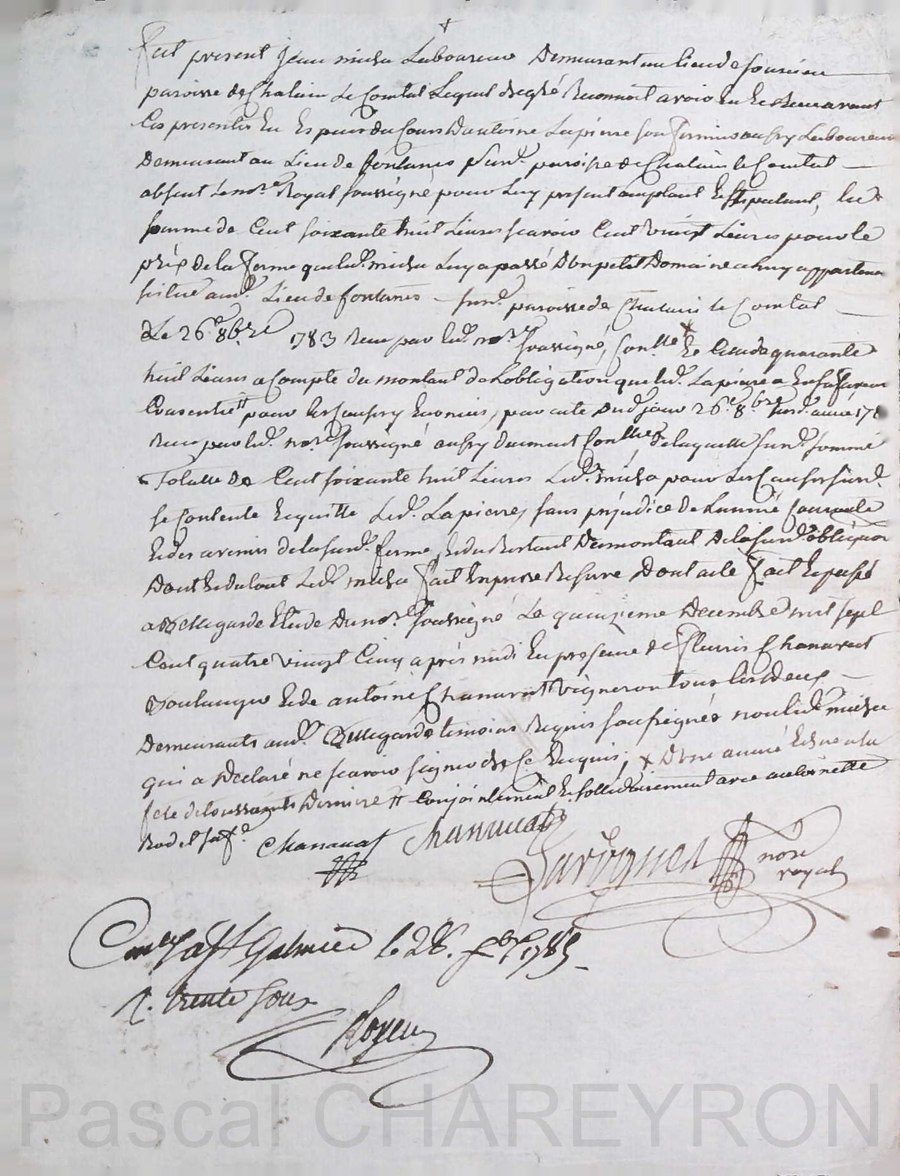 fut present jean micha Laboureur Demeurant au lieu de
paroisse de Chalain Le Comtal Lequel de gré Reconnoit avoir eu et Receu avant
Ces presentes En Especes du Cours D'antoine Lapierre son fermier aussy Laboureur
Demeurant au Lieu de fontanes susd. paroisse de Chalain le Comtal
absent Le nore Royal soussigné pour Luy present acceptant et stipulant, la
somme de Cent soixante huit Livres scavoir Cent vingt Livres pour le
prix de la ferme que led. micha Luy a passé D'un petit Domaine a luy appartenant
situé aud. Lieu de fontanes susd. paroisse de Chalain le Comtal
Le 26e 8bre 1783 Receu par led. nore soussigné, Conllé x Et Celle de quarante
huit Livres a Compte du montant de L'obligation que led. Lapierre a En sa faveur
Consentie # pour les Causes y Enoncées, par acte dud. jour 26e 8bre susd. année 178
Receu par led. nore soussigné aussy Duement Conllé De laquelle susd. somme
Totalle De Cent soixante huit Livres Led. micha pour Les Causes susd.
se Contente Et quitte Led. Lapierre, sans préjudice de L'année Courante
Et des avenirs de la susd. ferme, Et du Restant Du montant De la susd. obligaon
Dont Et du tout Led. micha fait Expresse Reserve Dont acte fait Et passé
a Bellegarde Etude Du nore soussigné Le quinzieme Decembre mil sept
Cent quatre vingt Cinq après midi En presence de fleuris Chanavat
Boulanger Et de antoine Chanavat Vigneron tous Les deux
Demeurants aud. Bellegarde temoins Requis soussignés non led. micha
qui a Declaré ne scavoir signer de Ce Enquis, x D'une année Echue a la
fete de toussaints Derniere # Conjointement Et sollidairement avec antoinette
sa fe.
Chanavat Chanavat
nore
royal
Conllé a St Galmier le 28. Xbre 1785
R. trente sous
Royer
Pascal CHAREYRON